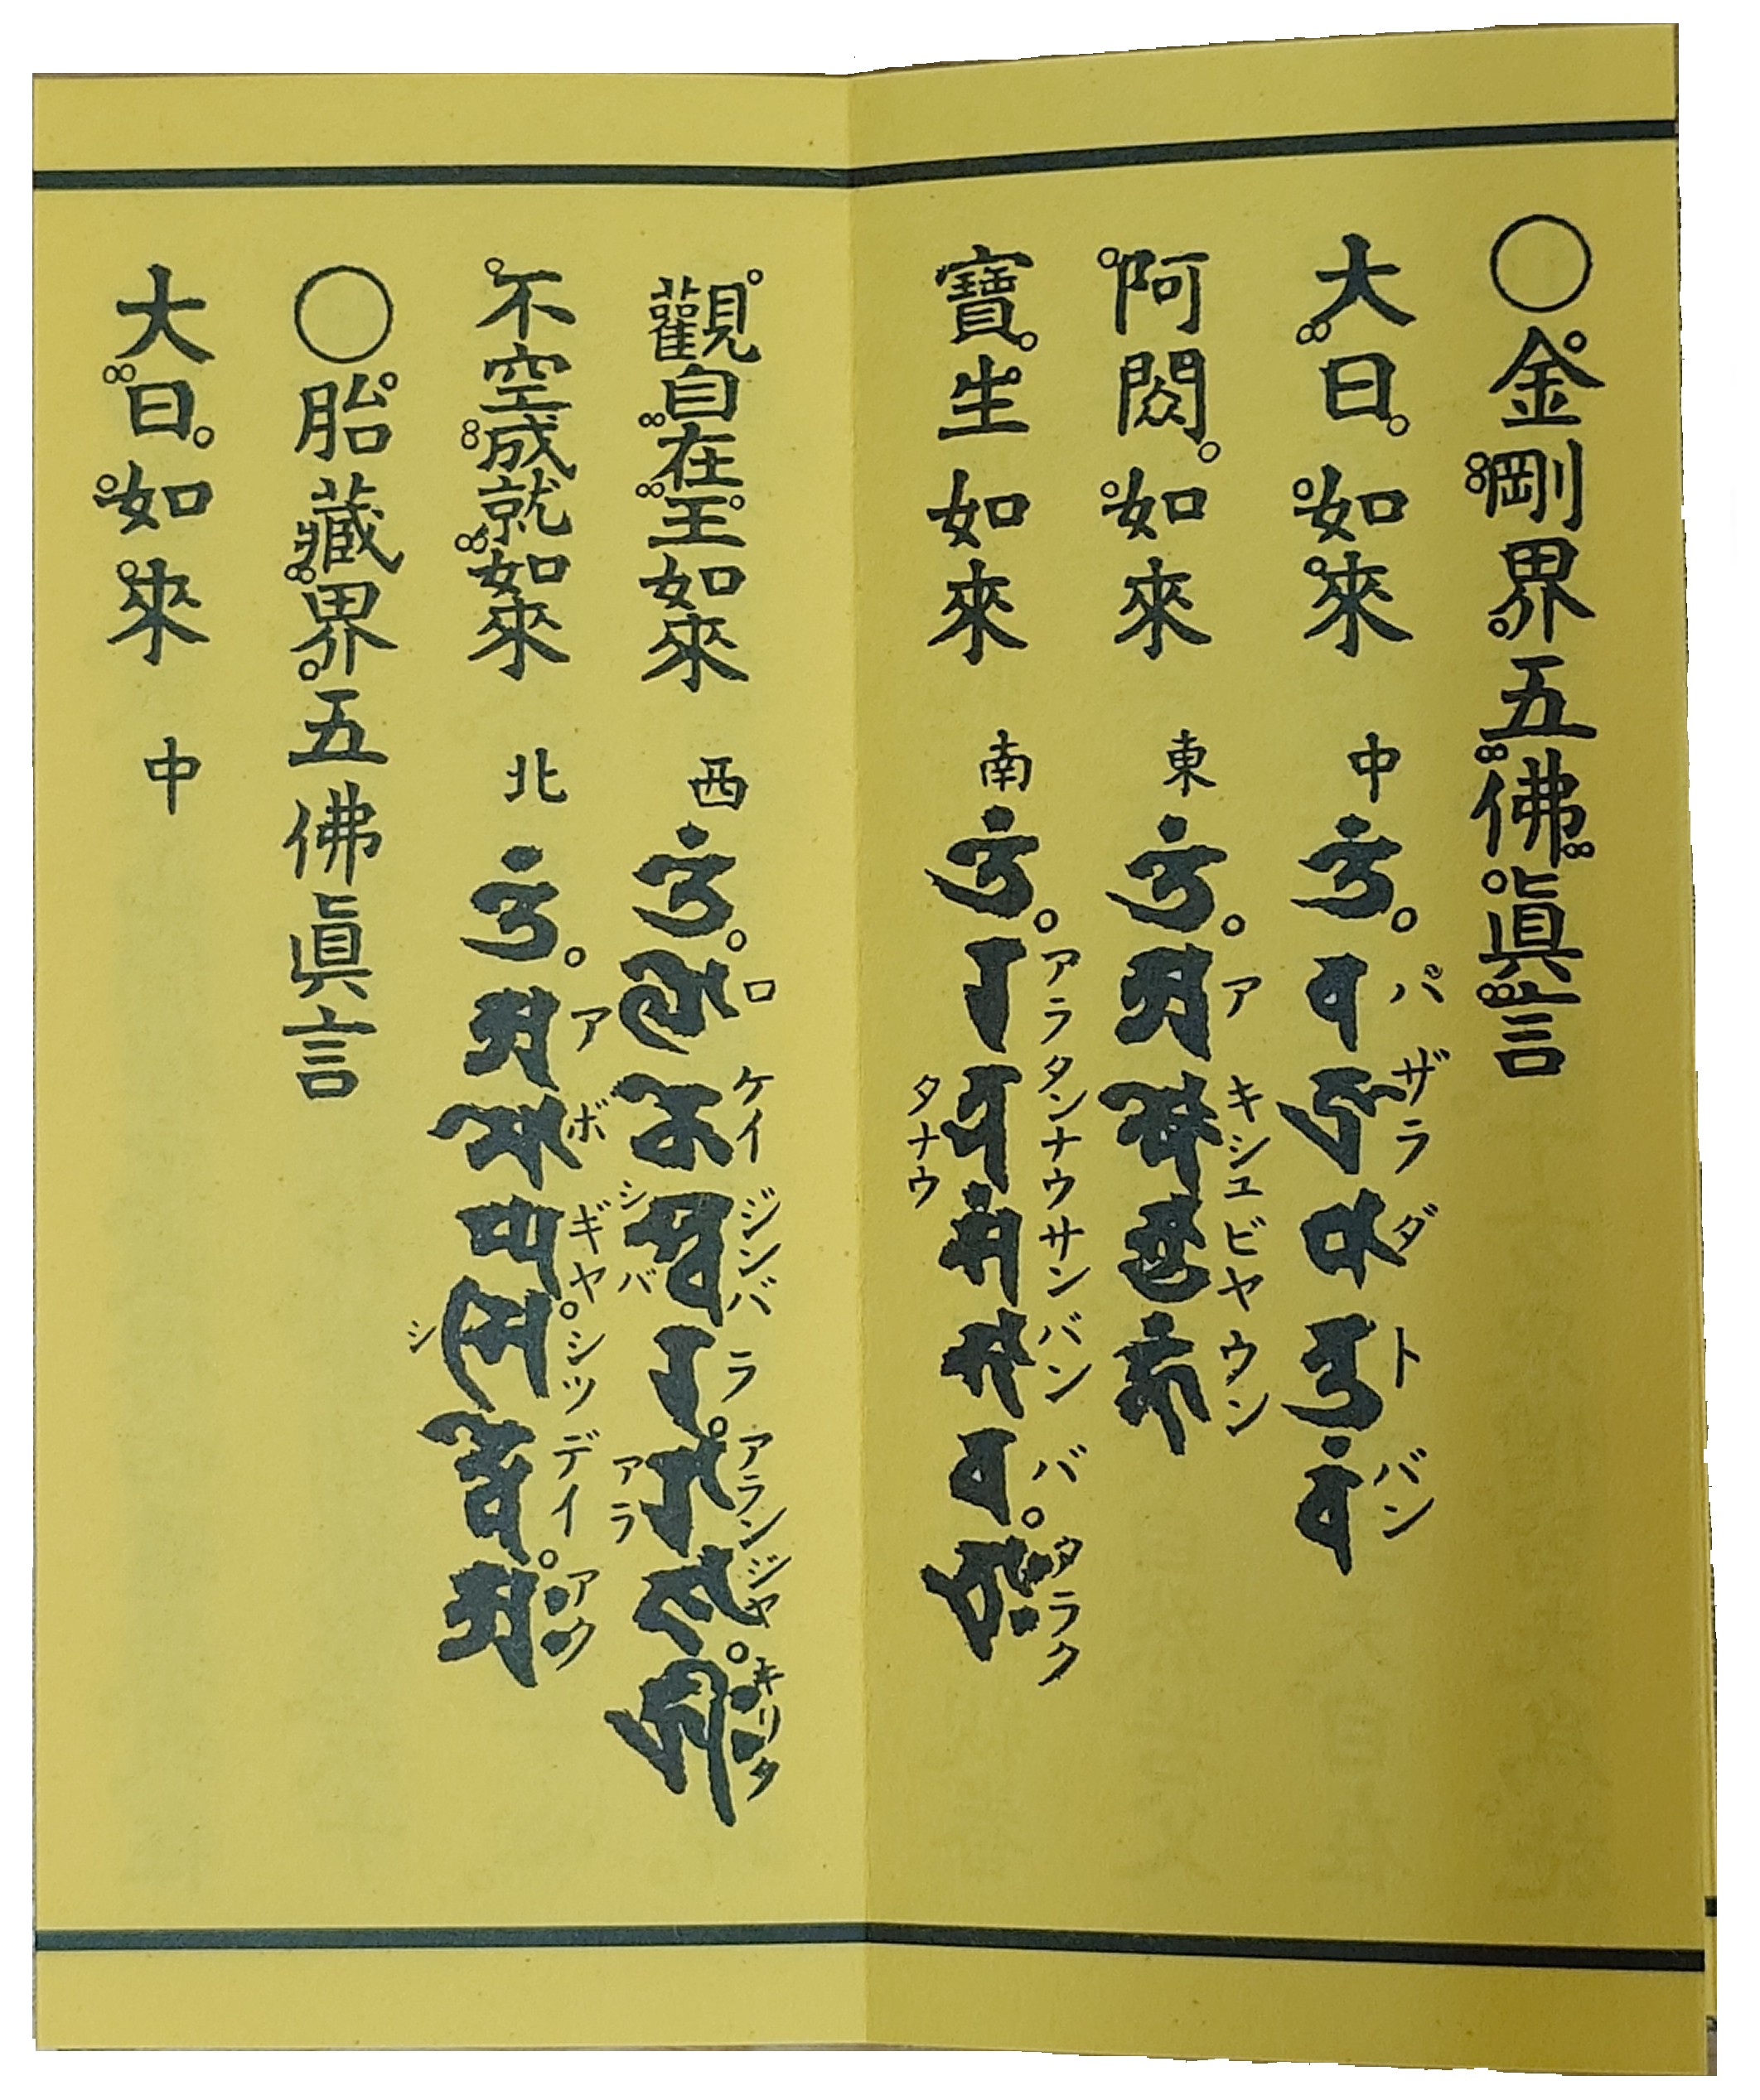 ○金剛界五佛眞言
バザラダトバン
大日如來 中 𑖌𑖽。𑖪𑖕𑖿𑖨𑖠𑖯𑖝𑖲𑖪𑖽
アキシユビヤウン
阿閦如來 東 𑖌𑖽。𑖀𑖎𑖿𑖬𑖺𑖥𑖿𑖧𑖮𑖳𑖽
アラタンナウサンバンバ タラク
寶生如來 南 𑖌𑖽。𑖨𑖝𑖿𑖡𑖭𑖽𑖥𑖪。𑖝𑖿𑖨𑖯𑖾
タナウ
ロケイジンバラアランジヤキリク
觀自在王如來 西 𑖌𑖽。𑖩𑖺𑖎𑖸𑖫𑖿𑖪𑖨。𑖨𑖯𑖕。𑖮𑖿𑖨𑖱𑖾
シバ アラ
アボギヤシツデイアク
不空成就如來 北 𑖌𑖽。𑖀𑖦𑖺𑖑。𑖭𑖰𑖟𑖿𑖠𑖸。𑖀𑖾
シ
○胎藏界五佛眞言
大日如來 中